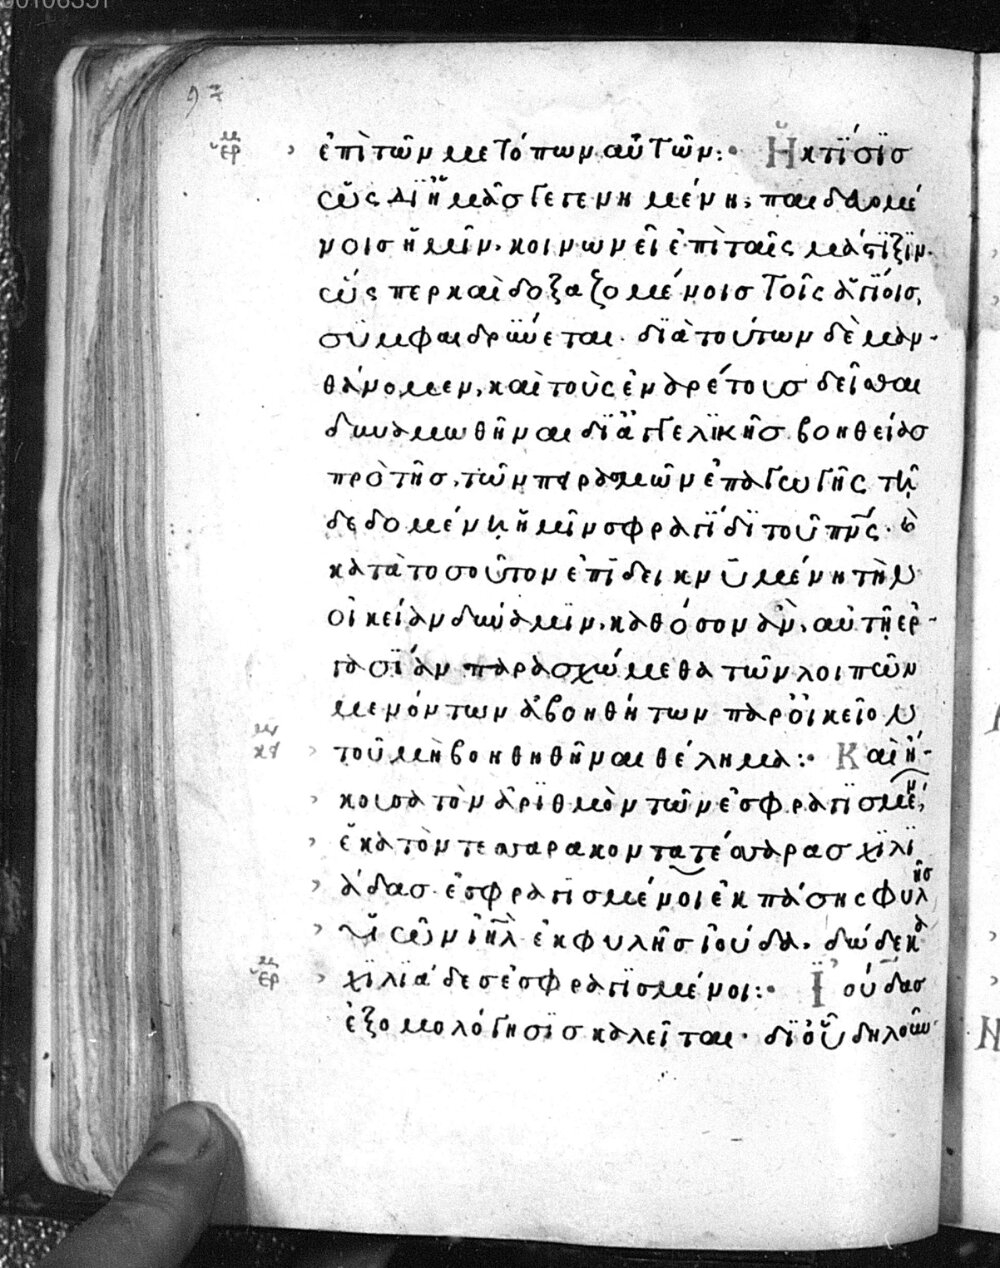 97
ἐπὶ τῶν μετόπων αὐτῶν: Ἡ κτίσις
ὡς δι ἡμᾶς γεγενημένη, παιδαομέ
νοις ἡμῖν· κοινωνεῖ ἐπὶ ταῖς μάστιξιν·
ὥς περ καὶ δοξαζομένοις τοῖς ἁγίοις,
συμφαιδρύνεται· διὰ τούτων δὲ μαν-
θάνομεν, καὶ τοὺς ἐναρέτους δεῖσθαι
δυναμωθῆναι δι ἀγγελικῆς βοηθείας
πρὸ τῆς τῶν πειρασμῶν ἐπαγωγῆς τῇ
δεδομένῃ ἡμῖν σφραγίδι τοῦ πνς·
κατὰ τοσοῦτον ἐπιδεικνυμένη τὴν
οἰκείαν δύναμιν, καθόσον ἂν, αὐτῇ ἐρ-
γασίαν παρασχώμεθα τῶν λοιπῶν
μενόντων ἀβοηθήτων παρ οἰκεῖον
τοῦ μὴ βοηθηθῆναι θέλημα: Καὶ ἤ-
κουσα τὸν ἀριθμὸν τῶν ἐσφραγισμέν
ἑκατὸν τεσσαρακοντατέσσαρας χιλι
άδας· ἐσφραγισμένοι ἐκ πάσης φυλῆς
υἱῶν ιηλ ἐκ φυλῆς ἰούδα, δώδεκα
χιλιάδες ἐσφραγισμένοι: Ἰούδας
ἐξομολόγησις καλεῖται· δι οὗ δηλοῦν